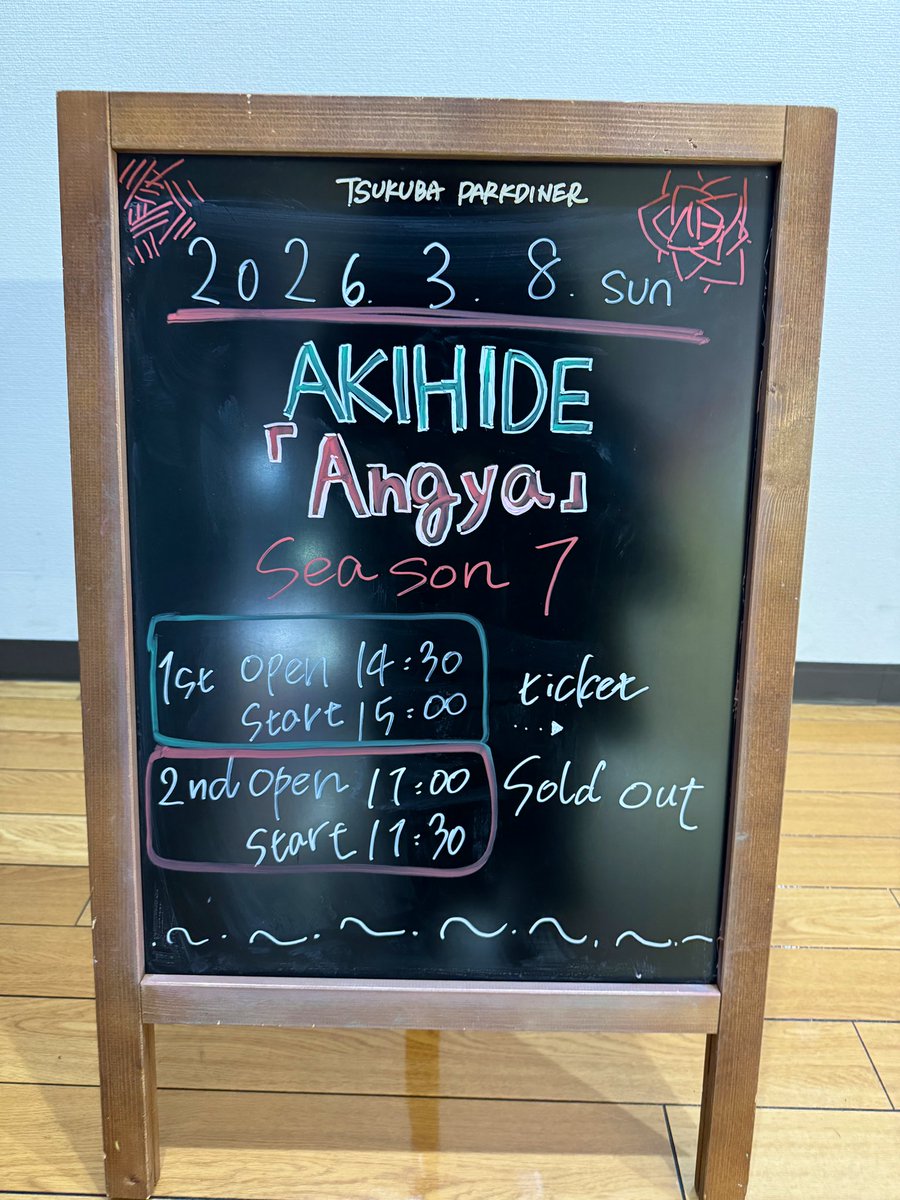 TSUKUBA PARKDINER
2026. 3. 8. sun
AKIHIDE
「Angya」
Season 7
1st open 14:30
start 15:00
2nd open 17:00
start 17:30
ticket
...▶
Sold out